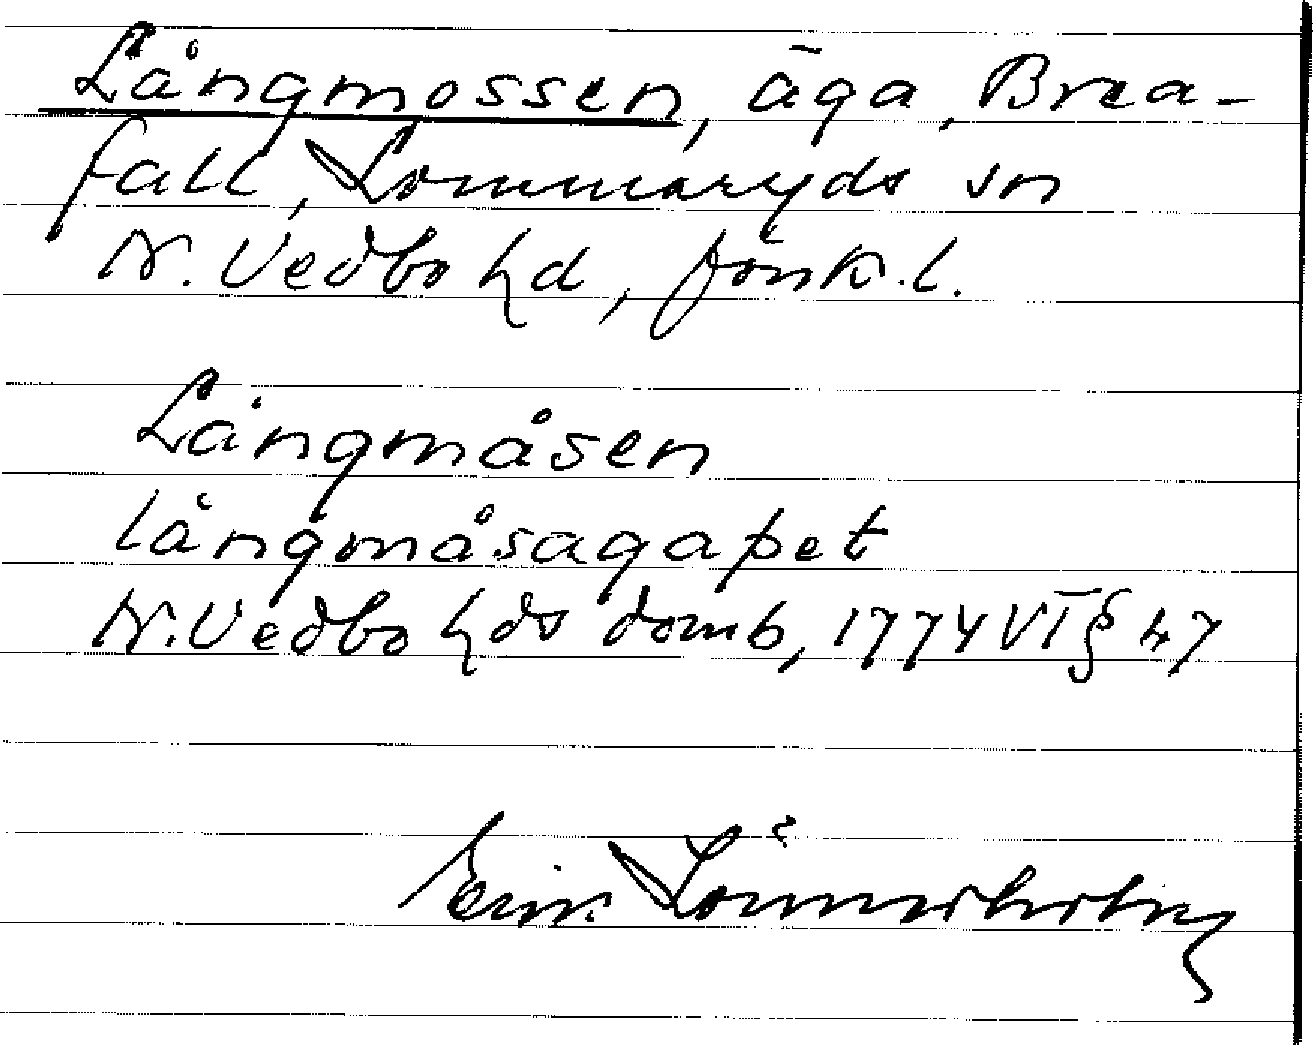 Långmossen, äga, Brea-
fall, Lommaryds sn
N. Vedbo hd, Jönk. l.
Långmåsen
långmåsagapet
N. Vedbo hds domb, 1774 VI § 47
Erik Lönnerholm